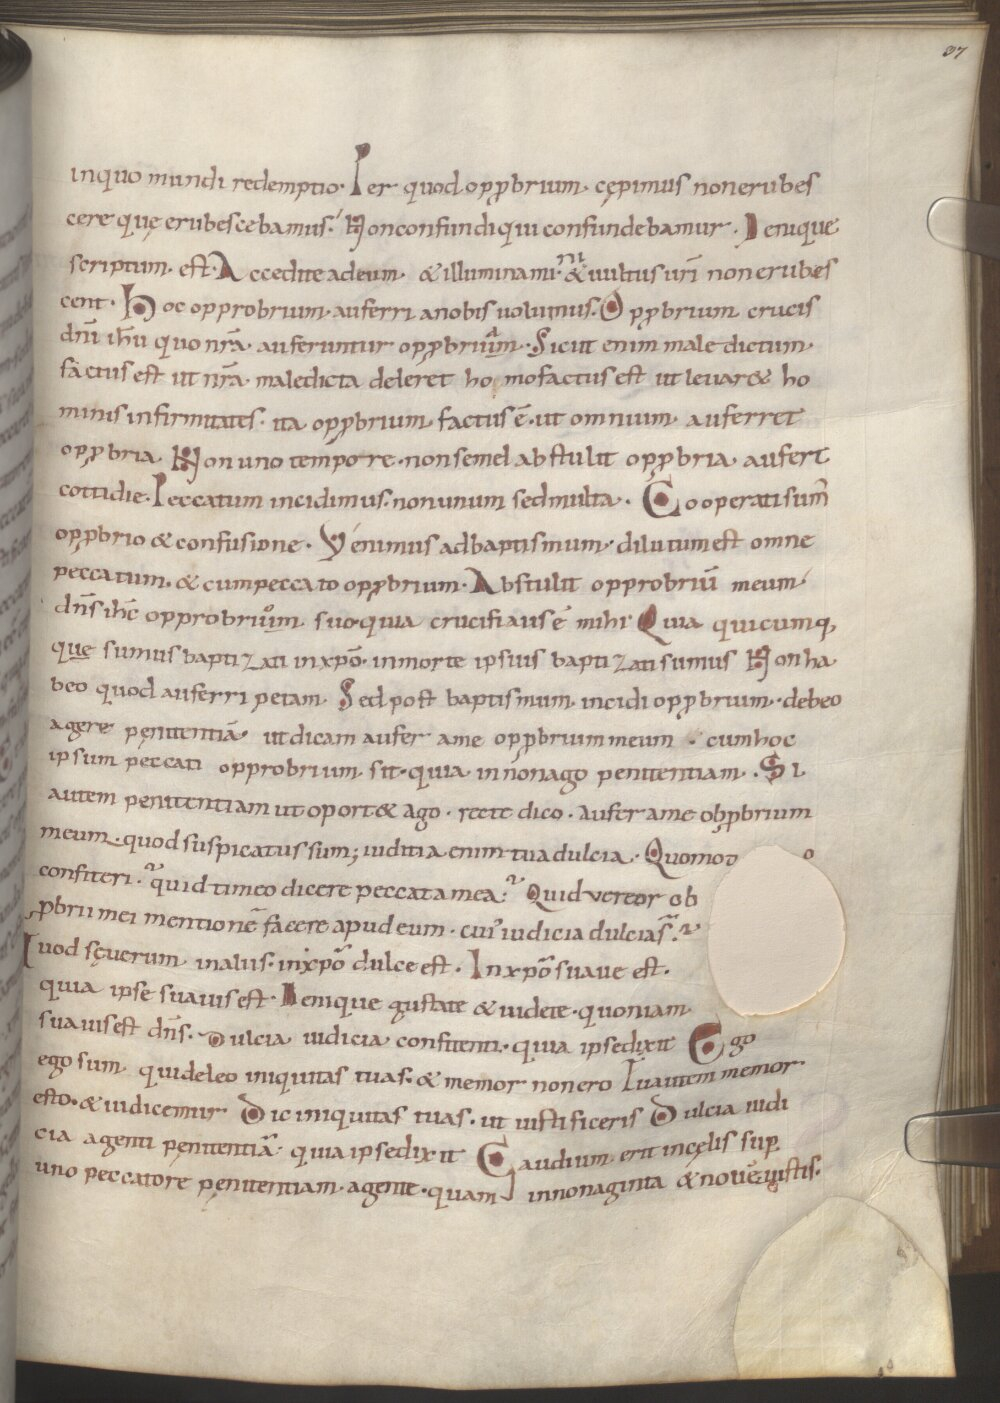 37
in quo mundi redemptio. Per quod opp̄brium. cępimus non erubes
cere quę erubescebamus. Non confundi qui confundebamur. Denique
scriptum. est. Accedite ad eum. & illuminami. ni & uultus ur̄i non erubes
cent. Hoc opprobrium. auferri a nobis uolumus. Opp̄brium crucis
dn̄i ih̄u quo nr̄a auferuntur opp̄briūm. Sicut enim maledictum.
factus est ut nr̄a maledicta deleret homo factus est ut leuar& ho
minis infirmitates. ita opp̄brium. factus ē. ut omnium. auferret
opp̄bria. Non uno tempore. non semel abstulit opp̄bria aufert
cottidie. Peccatum incidimus. non unum sed multa. Cooperati sum̄
opp̄brio & confusione. Venimus ad baptismum. dilutum est omne
peccatum. & cum peccato opp̄brium. Abstulit opprobriū meum
dn̄s ih̄c opprobrium. suo. quia crucifixus ē mihi Quia quicumq,
que sumus baptizati in xp̄o. in morte ipsius baptizati sumus Non ha
beo quod auferri petam. Sed post baptismum. incidi opp̄brium. debeo
agere pęnitentiā. ut dicam aufer a me opp̄brium meum. cum hoc
ipsum peccati opprobrium sit. quia in non ago penitentiam. Si
autem penitentiam ut oport& ago. recte dico. aufer a me obp̄brium
meum. quod suspicatus sum; iuditia enim tua dulcia. Quomodo
confiteri. quid timeo dicere peccata mea. Quid vereor ob
p̄brii mei mentionē facere apud eum. cui' iudicia dulcia s̄.
Quod sęuerum in alus. in xp̄o dulce est. In xp̄o suaue est.
quia ipse suauis est. Denique gustate & uidete. quoniam
suauis est dn̄s. Dulcia iudicia confitenti. quia ipse dixit Ego
ego sum qui deleo iniquitas tuas. & memor non ero Tu autem memor
esto. & iudicemur Dic iniquitas tuas. ut iustificeris Dulcia iudi
cia agenti pęnitentiā. quia ipse dixit Gaudium erit in cęlis sup̄
uno peccatore pęnitentiam. agente. quam in nonaginta & nouē iustis.